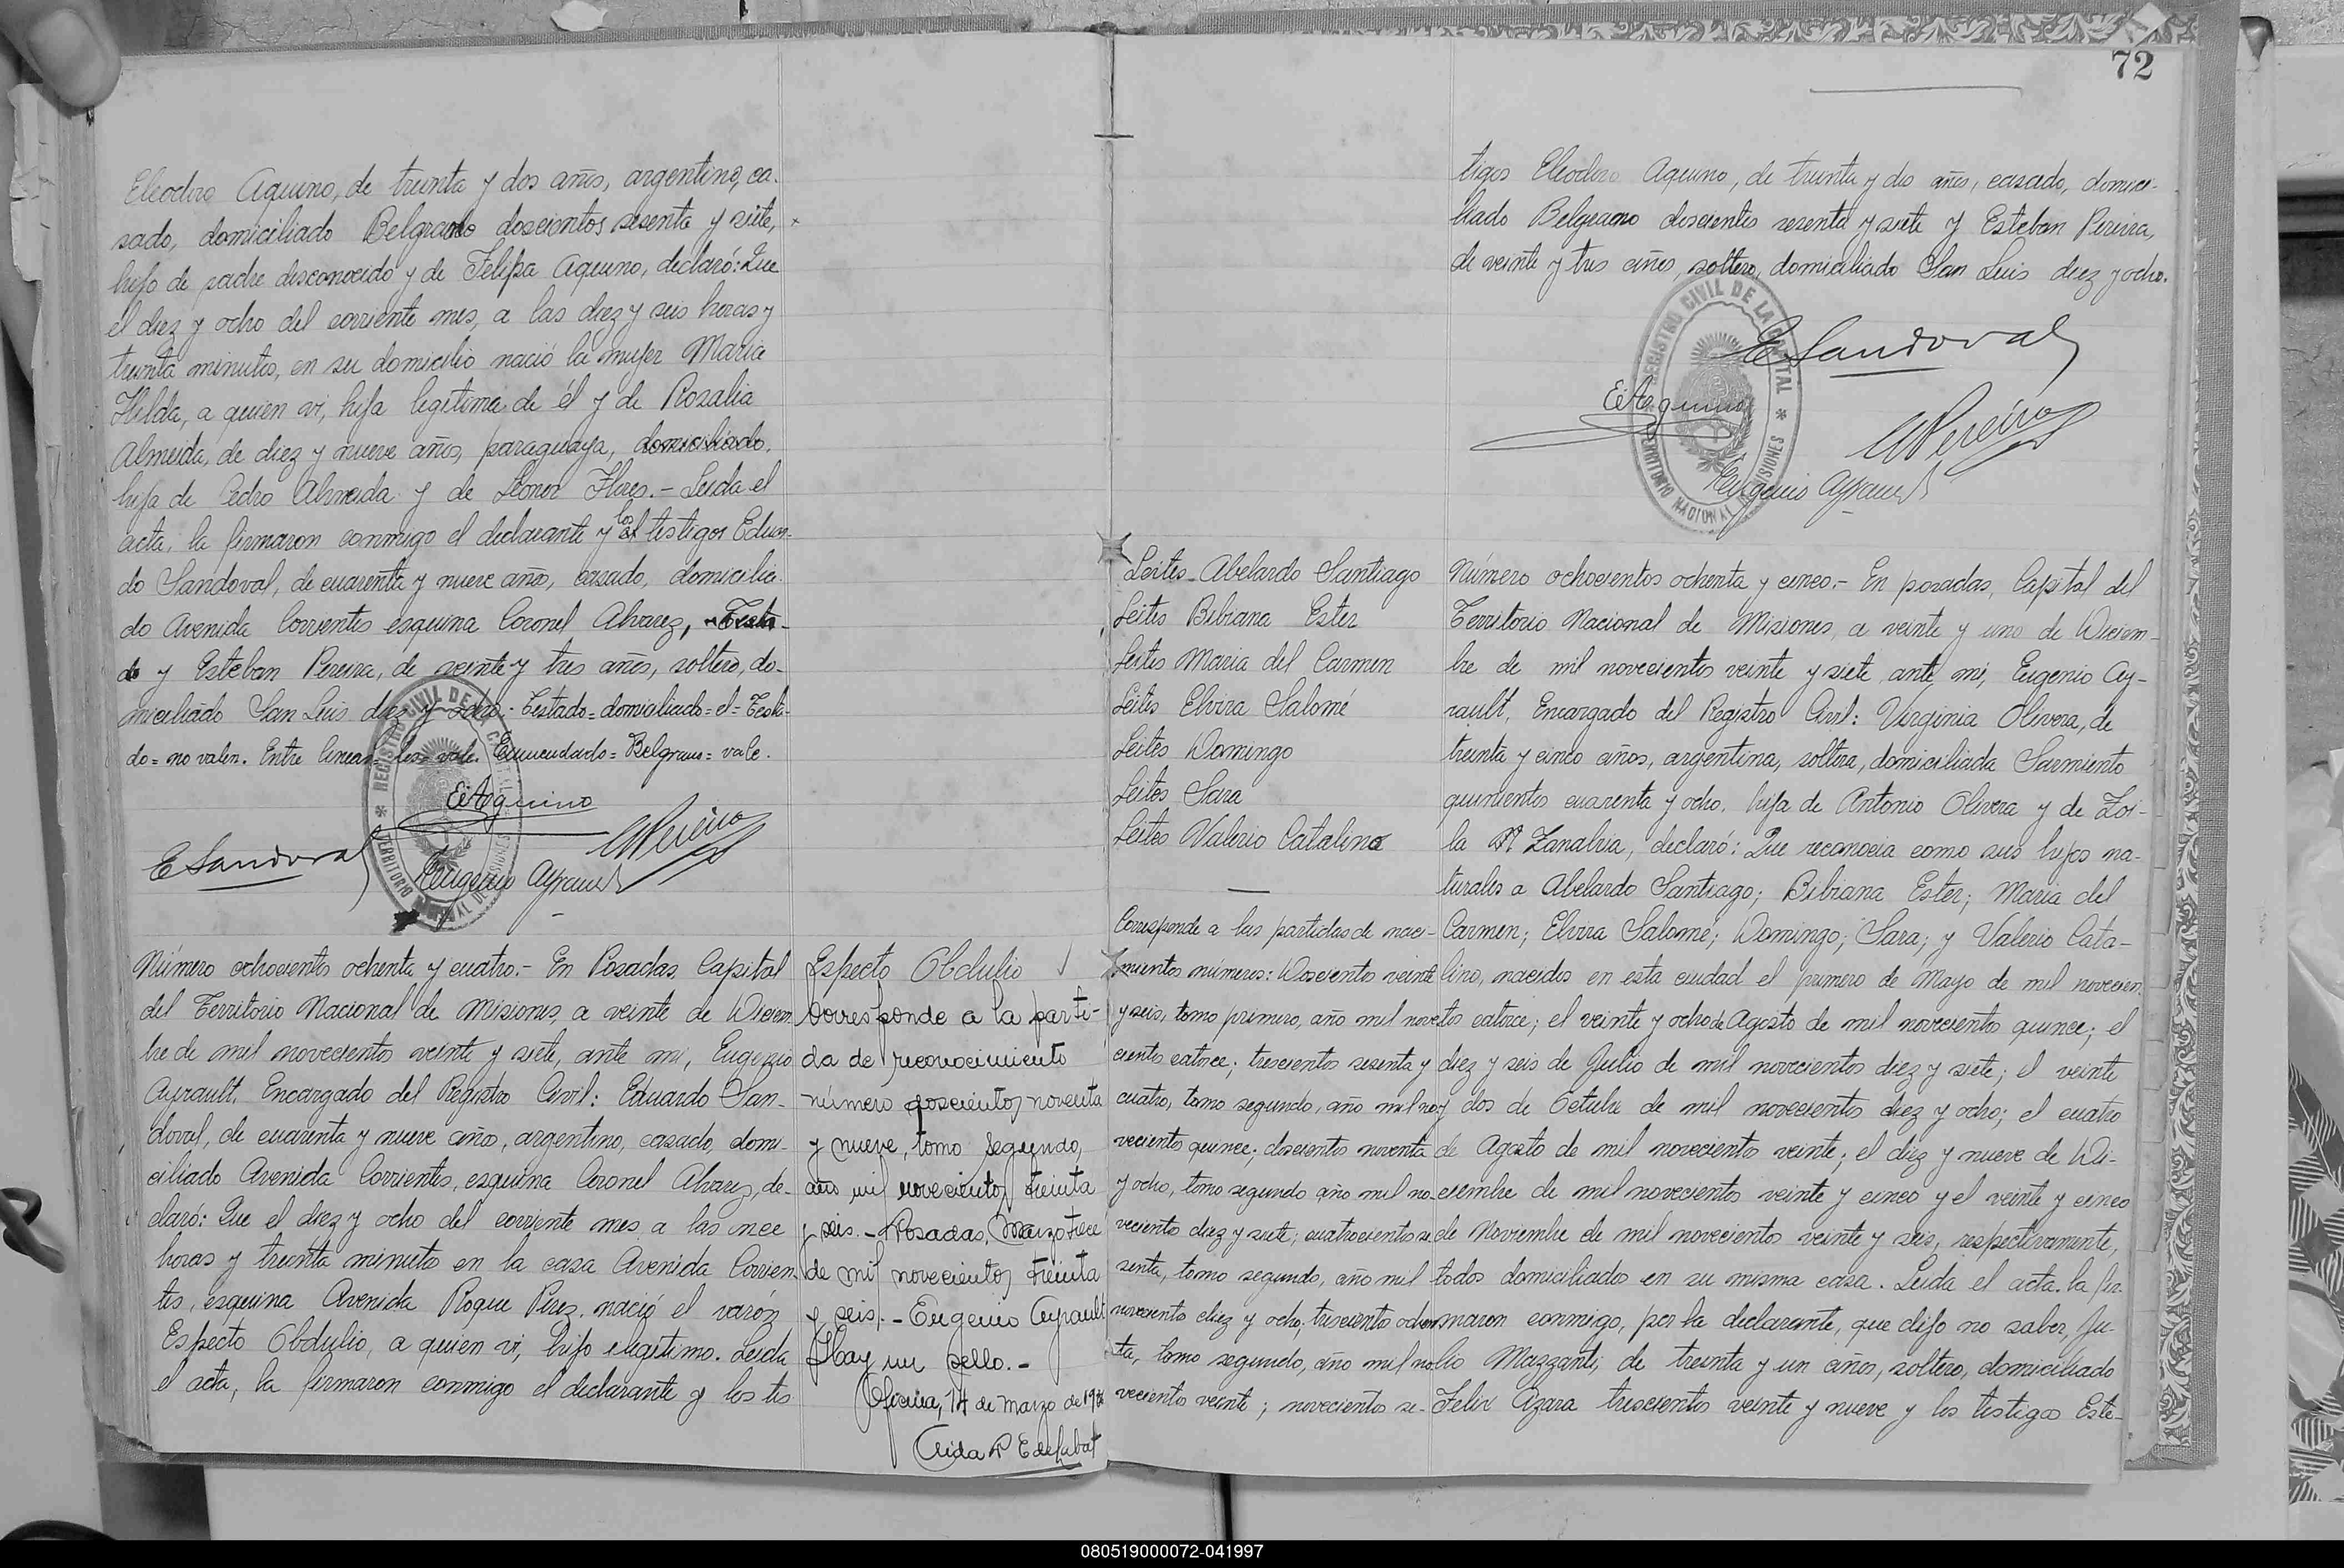 Eleodoro Aquino, de treinta y dos años, argentino, ca-
sado, domiciliado Belgrano doscientos sesenta y siete,
hijo de padre desconocido y de Felipa Aquino, declaró: Que
el diez y ocho del corriente mes, a las diez y seis horas y
treinta minutos, en su domicilio nació la mujer Maria
Hilda, a quien vi, hija legitima de él y de Rosalia
Almeida, de diez y nueve años, paraguaya, domiciliado,
hija de Pedro Almeida y de Leonor Flores.- Leida el
acta, la firmaron conmigo el declarante y el los testigos Eduar-
do Sandoval, de cuarenta y nueve años, casado, domicilia-
do Avenida Corrientes esquina Coronel Alvarez, Testa-
do y Esteban Pereira, de veinte y tres años, soltero, do-
miciliado San Luis diez y ocho.- Testado=domiciliado=el=Testa-
do=no valen. Entre lineas=los=vale. Enmendado=Belgrano=vale.
E Aquino
E Sandoval
E Pereira
Eugenio Ayrault
REGISTRO CIVIL DE LA CAPITAL
TERRITORIO NACIONAL DE MISIONES
Número ochocientos ochenta y cuatro.- En Posadas, Capital
del Territorio Nacional de Misiones, a veinte de Diciem-
bre de mil novecientos veinte y siete, ante mi, Eugenio
Ayrault, Encargado del Registro Civil: Eduardo San-
doval, de cuarenta y nueve años, argentino, casado, domi-
ciliado Avenida Corrientes, esquina Coronel Alvarez, de-
claró: Que el diez y ocho del corriente mes, a las once
horas y treinta minutos en la casa Avenida Corrien-
tes, esquina Avenida Roque Perez, nació el varón
Especto Obdulio, a quien vi, hijo ilegitimo. Leida
el acta, la firmaron conmigo el declarante y los tes
Especto Obdulio
Corresponde a la parti-
da de reconocimiento
número doscientos noventa
y nueve, tomo segundo,
año mil novecientos treinta
y seis.- Posadas, Marzo trece
de mil novecientos treinta
y seis.- Eugenio Ayrault
Hay un sello.-
Oficina, 14 de Marzo de 1936
72
tigos Eleodoro Aquino, de treinta y dos años, casado, domici-
liado Belgrano doscientos sesenta y siete y Esteban Pereira,
de veinte y tres años, soltero, domiciliado San Luis diez y ocho.
REGISTRO CIVIL DE LA CAPITAL
TERRITORIO NACIONAL DE MISIONES
E Sandoval
E Aquino
E Pereira
Eugenio Ayrault
Leites Abelardo Santiago
Leites Bibiana Ester
Leites Maria del Carmen
Leites Elvira Salomé
Leites Domingo
Leites Sara
Leites Valerio Catalino
Corresponde a las partidas de naci-
mientos números: Doscientos veinte
y seis, tomo primero, año mil nove-
cientos catorce; trescientos sesenta y
cuatro, tomo segundo, año mil no-
vecientos quince; doscientos noventa
y ocho, tomo segundo año mil no-
vecientos diez y siete; cuatrocientos se-
senta, tomo segundo, año mil
novecientos diez y ocho; trescientos ochen-
ta, tomo segundo, año mil no-
vecientos veinte; novecientos se-
Número ochocientos ochenta y cinco.- En posadas, Capital del
Territorio Nacional de Misiones, a veinte y uno de Diciem-
bre de mil novecientos veinte y siete, ante mi, Eugenio Ay-
rault, Encargado del Registro Civil: Virginia Olivera, de
treinta y cinco años, argentina, soltera, domiciliada Sarmiento
quinientos cuarenta y ocho, hija de Antonio Olivera y de Zoi-
la Zanabria, declaró: Que reconocia como sus hijos na-
turales a Abelardo Santiago; Bibiana Ester; Maria del
Carmen; Elvira Salomé; Domingo; Sara; y Valerio Cata-
lino, nacidos en esta ciudad el primero de Mayo de mil novecien-
tos catorce; el veinte y ocho de Agosto de mil novecientos quince; el
diez y seis de Julio de mil novecientos diez y siete; el veinte
y dos de Octubre de mil novecientos diez y ocho; el cuatro
de Agosto de mil novecientos veinte; el diez y nueve de Di-
ciembre de mil novecientos veinte y cinco y el veinte y cinco
de Noviembre de mil novecientos veinte y seis, respectivamente,
todos domiciliados en su misma casa. Leida el acta, la fir-
maron conmigo, por la declarante, que dijo no saber, Ju-
lio Mazzanti, de treinta y un años, soltero, domiciliado
Felix Azara trescientos veinte y nueve y los testigos Este-
080519000072-041997